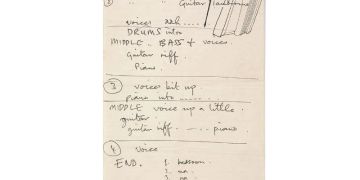 ②
voices
DRUMS intro
MIDDLE .. BASS & voices.
Guitar riff.
Piano.
③ voices bit up
piano intro
MIDDLE voice up a little.
guitar
guitar riff ..... piano
④ voice
END. 1.
2. no
3. no